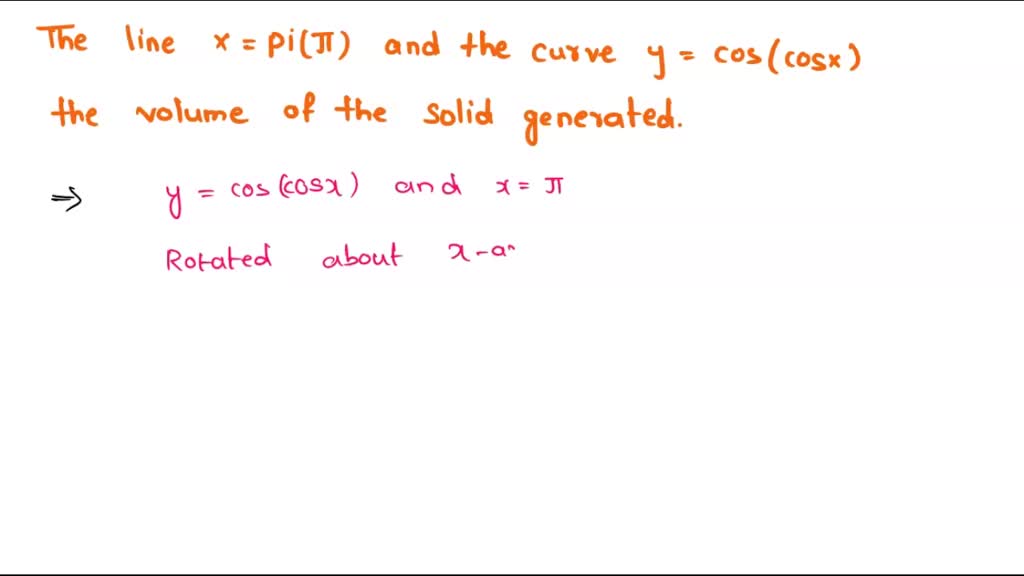 The line x = Pi(π) and the curve y = cos(cosx)
the volume of the solid generated.
⇒ y = cos(cosx) and x = π
Rotated about x-a